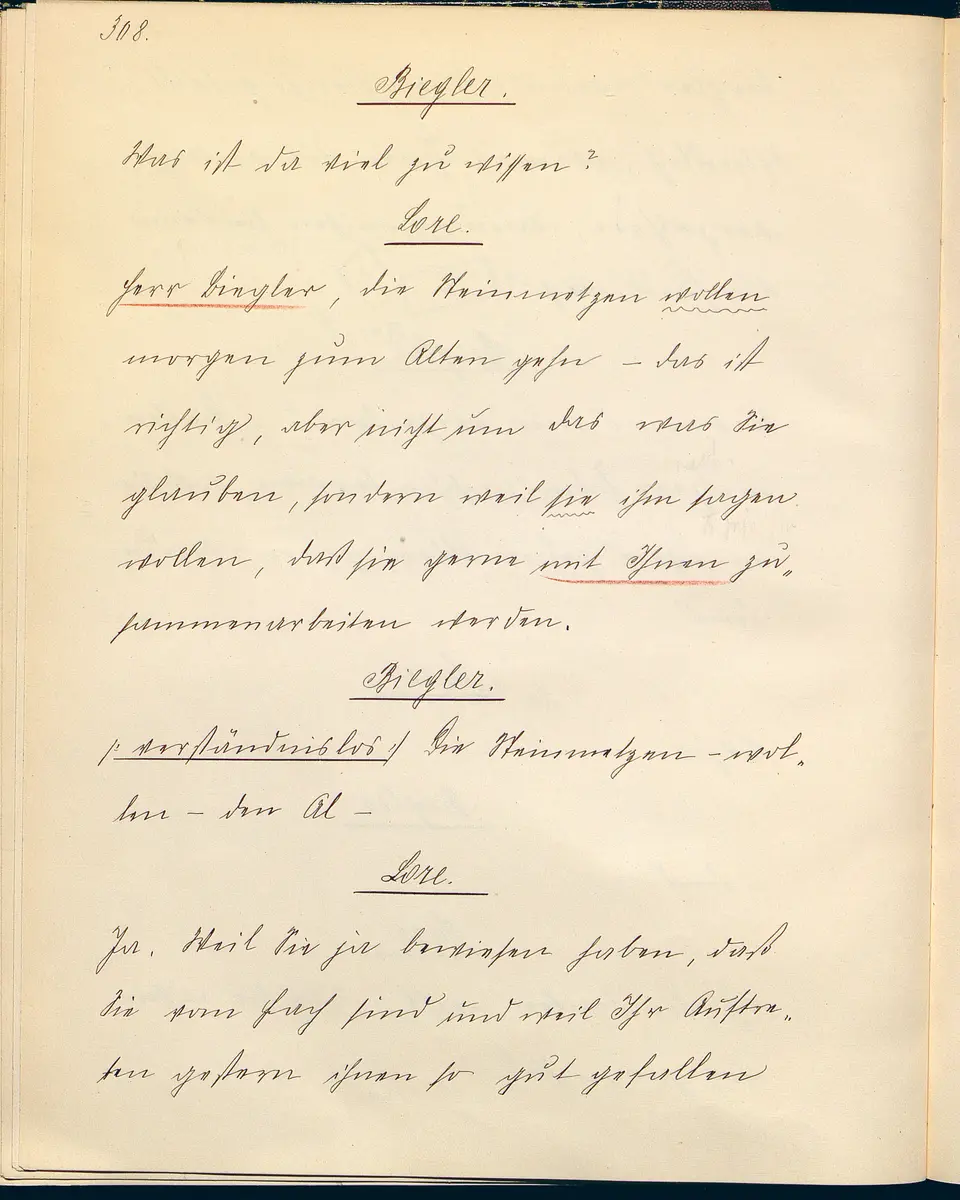 308.
Biegler.
Was ist da viel zu wissen?
Lore.
Herr Biegler, die Steinmetzen wollen
morgen zum Alten gehn – das ist
richtig, aber nicht um das was Sie
glauben, sondern weil sie ihm sagen
wollen, daß sie gerne mit Ihnen zu„
sammenarbeiten werden.
Biegler.
/: verständnislos :/ Die Steinmetzen – wol„
len – den Al –
Lore.
Ja. Weil Sie ja bewiesen haben, daß
Sie vom Fach sind und weil Ihr Auftre„
ten gestern ihnen so gut gefallen